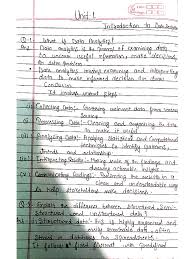 Unit 1
Introduction to Data
Q-1 What is Data Analytics?
Data Analytics is the process of examining data
to uncover useful information, make decisions,
or solve problems.
Data Analytics involves examining and interpreting
data to make informed decision or draw
conclusion.
It involves several steps
Collecting Data:- Gathering relevant data from various
sources
Processing Data:- Cleaning and organizing the data
to make it useful
Analyzing Data:- Applying statistical and computational
techniques to identify patterns,
trends and relationship.
Interpreting Results:- Making sense of the findings and
drawing actionable insights.
Communicating Findings:- Presenting the results in a
clear and understandable way to
help stakeholders make decisions.
Explain the difference between Structured, Semi-
Structured and Unstructured data?
Structured data:- is highly organized and
easily searchable data, often
stored in databases or Spreadsheets.
It follows a fixed format with predefined